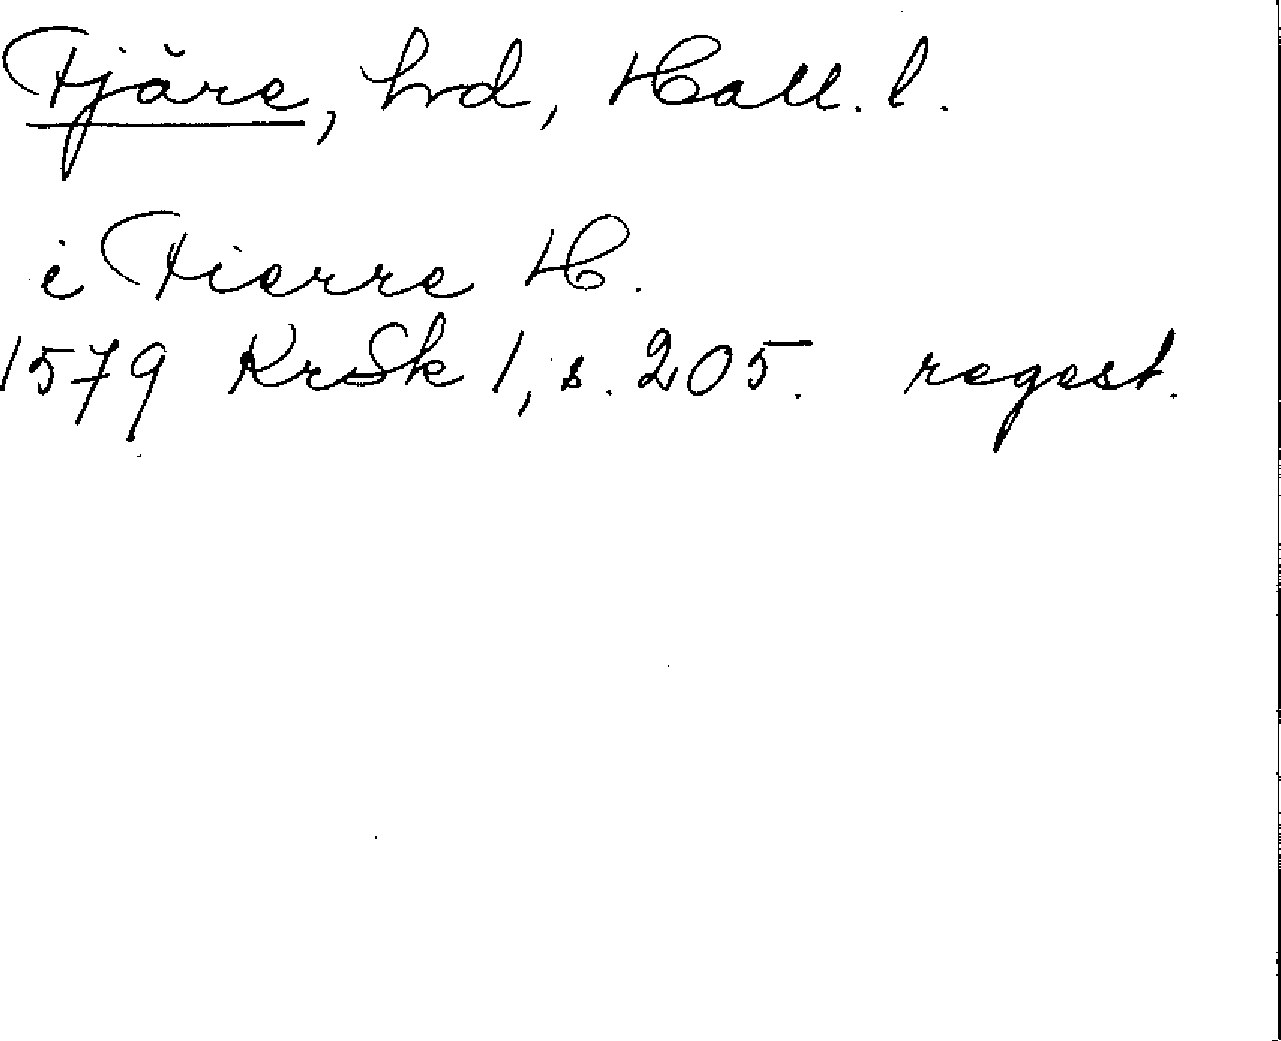 Fjäre, hd, Hall. l.
i Fierre H.
1579 KrSk 1, s. 205. regest.